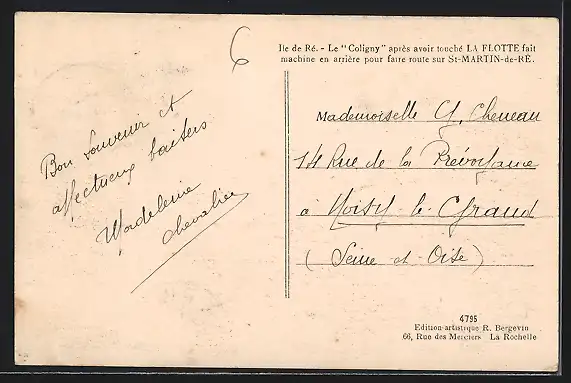 6
Ile de Ré. - Le "Coligny" après avoir touché LA FLOTTE fait
machine en arrière pour faire route sur St-MARTIN-de-RÉ.
Bon souvenir et
affectueux baisers
Madeleine
Chevalier
Mademoiselle G. Cheneau
14 Rue de la Prévoyance
à Noisy le Grand
(Seine et Oise)
4795
Edition artistique R. Bergevin
66, Rue des Merciers La Rochelle